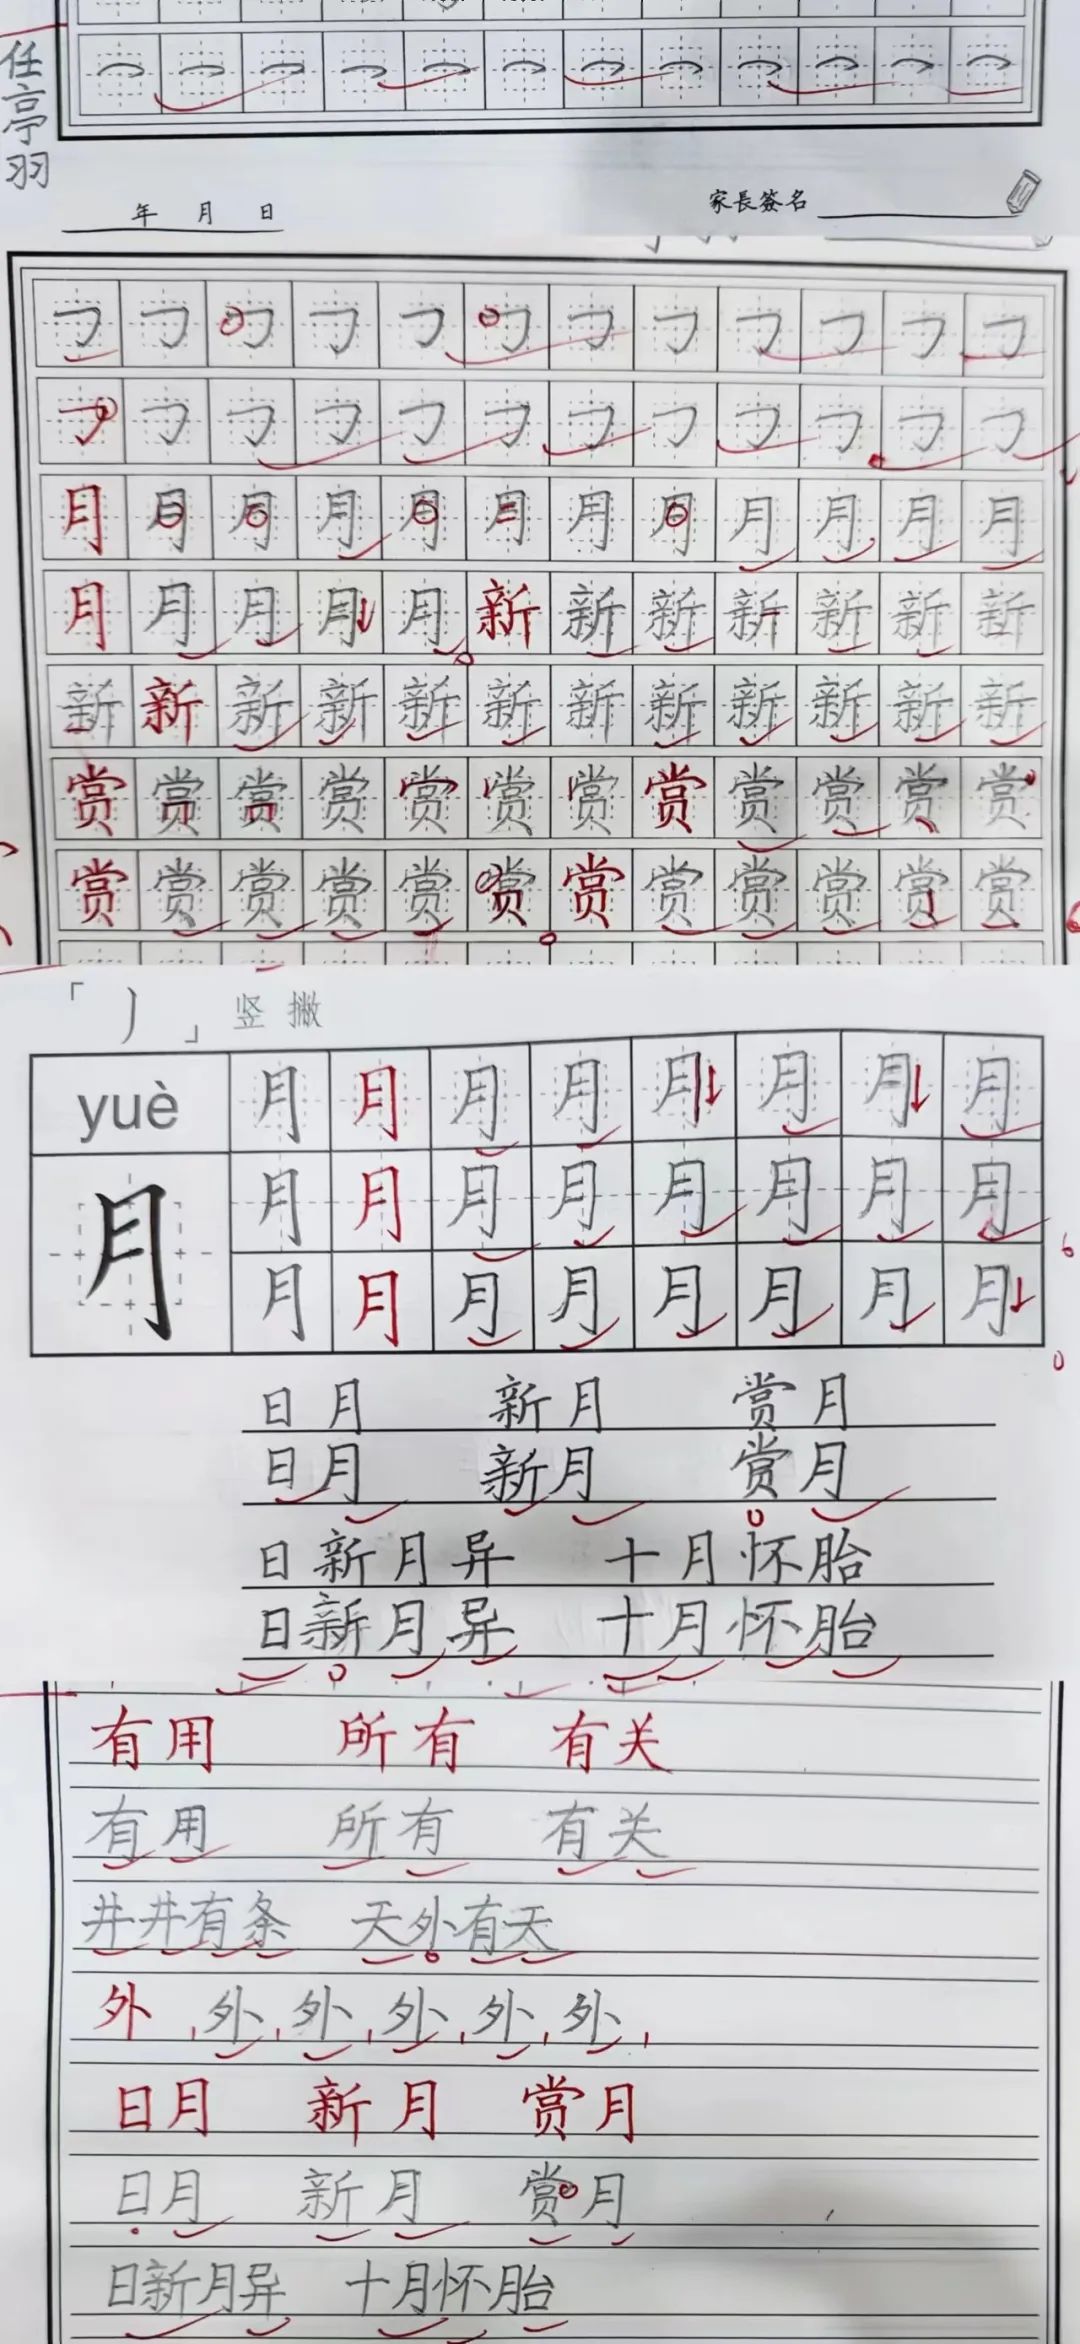 任亭羽
年 月 日
家長簽名
月 月 月 月 月 月 月 月 月 月 月 月
月 月 月 月 月 新 新 新 新 新 新 新
新 新 新 新 新 新 新 新 新 新 新 新
赏 赏 赏 赏 赏 赏 赏 赏 赏 赏 赏 赏
赏 赏 赏 赏 赏 赏 赏 赏 赏 赏 赏 赏
「丿」竖 撇
yuè 月 月 月 月 月 月 月 月
月 月 月 月 月 月 月 月 月
月 月 月 月 月 月 月 月
日月 新月 赏月
日月 新月 赏月
日新月异 十月怀胎
日新月异 十月怀胎
有用 所有 有关
有用 所有 有关
井井有条 天外有天
外 外 外 外 外 外
日月 新月 赏月
日月 新月 赏月
日新月异 十月怀胎